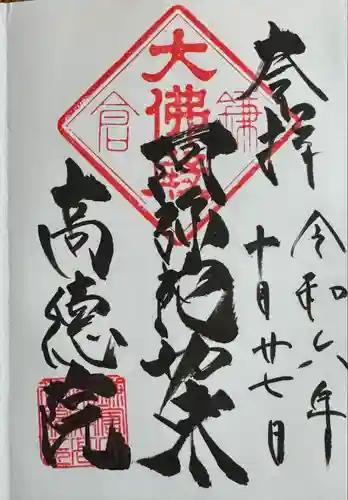 奉拝
令和六年
十月廿七日
大佛殿
鎌倉
阿弥陀如来
高徳院